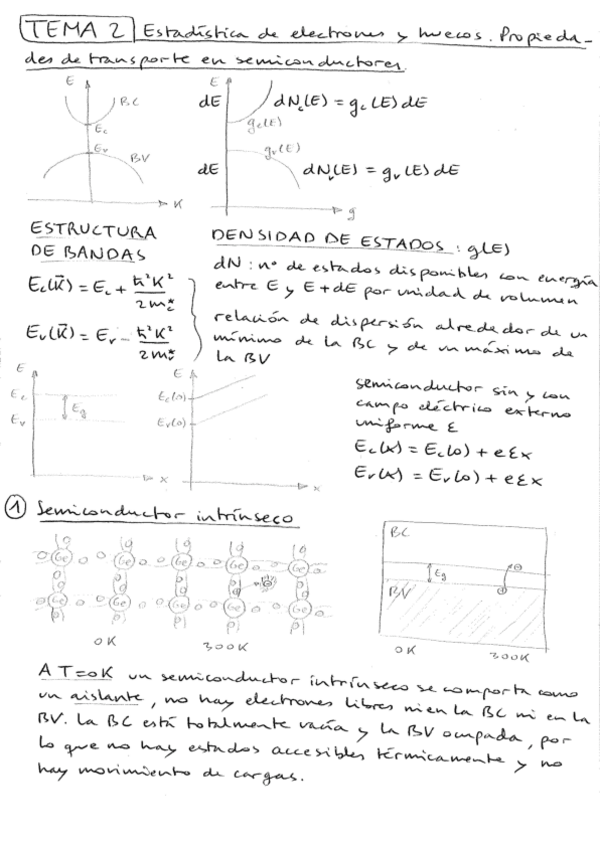 TEMA 2 Estadística de electrones y huecos. Propieda-
des de transporte en semiconductores.
E
BC
Ec
Ev
BV
K
E
dE
dNc(E) = gc(E)dE
gc(E)
gv(E)
dE
dNv(E) = gv(E)dE
g
ESTRUCTURA
DE BANDAS
Ec(K⃗) = Ec + ħ²K²/2mc*
Ev(K⃗) = Ev - ħ²K²/2mv*
DENSIDAD DE ESTADOS: g(E)
dN: nº de estados disponibles con energía
entre E y E+dE por unidad de volumen
relación de dispersión alrededor de un
mínimo de la BC y de un máximo de
la BV
E
Ec
Eg
Ev
x
E
Ec(0)
Ev(0)
x
semiconductor sin y con
campo eléctrico externo
uniforme ε
Ec(x) = Ec(0) + eεx
Ev(x) = Ev(0) + eεx
① Semiconductor intrínseco
Ge Ge Ge Ge Ge
Ge Ge Ge Ge Ge
0K 300K
BC
Eg
BV
0K 300K
A T=0K un semiconductor intrínseco se comporta como
un aislante, no hay electrones libres ni en la BC ni en la
BV. La BC está totalmente vacía y la BV ocupada, por
lo que no hay estados accesibles térmicamente y no
hay movimiento de cargas.